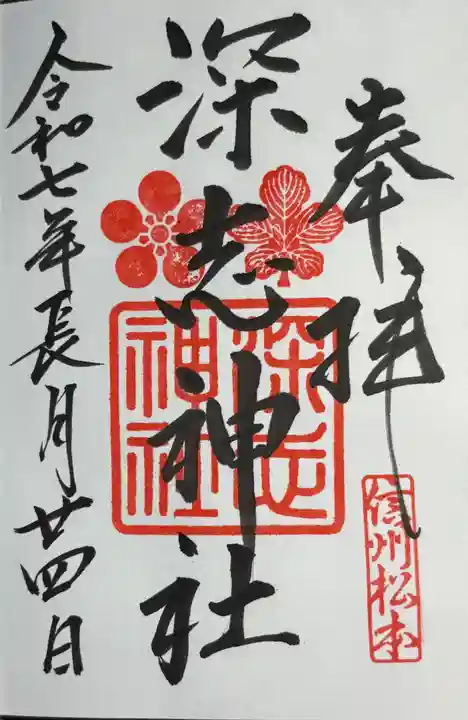 奉拝
信州松本
深志神社
深志神社
令和七年長月廿四日